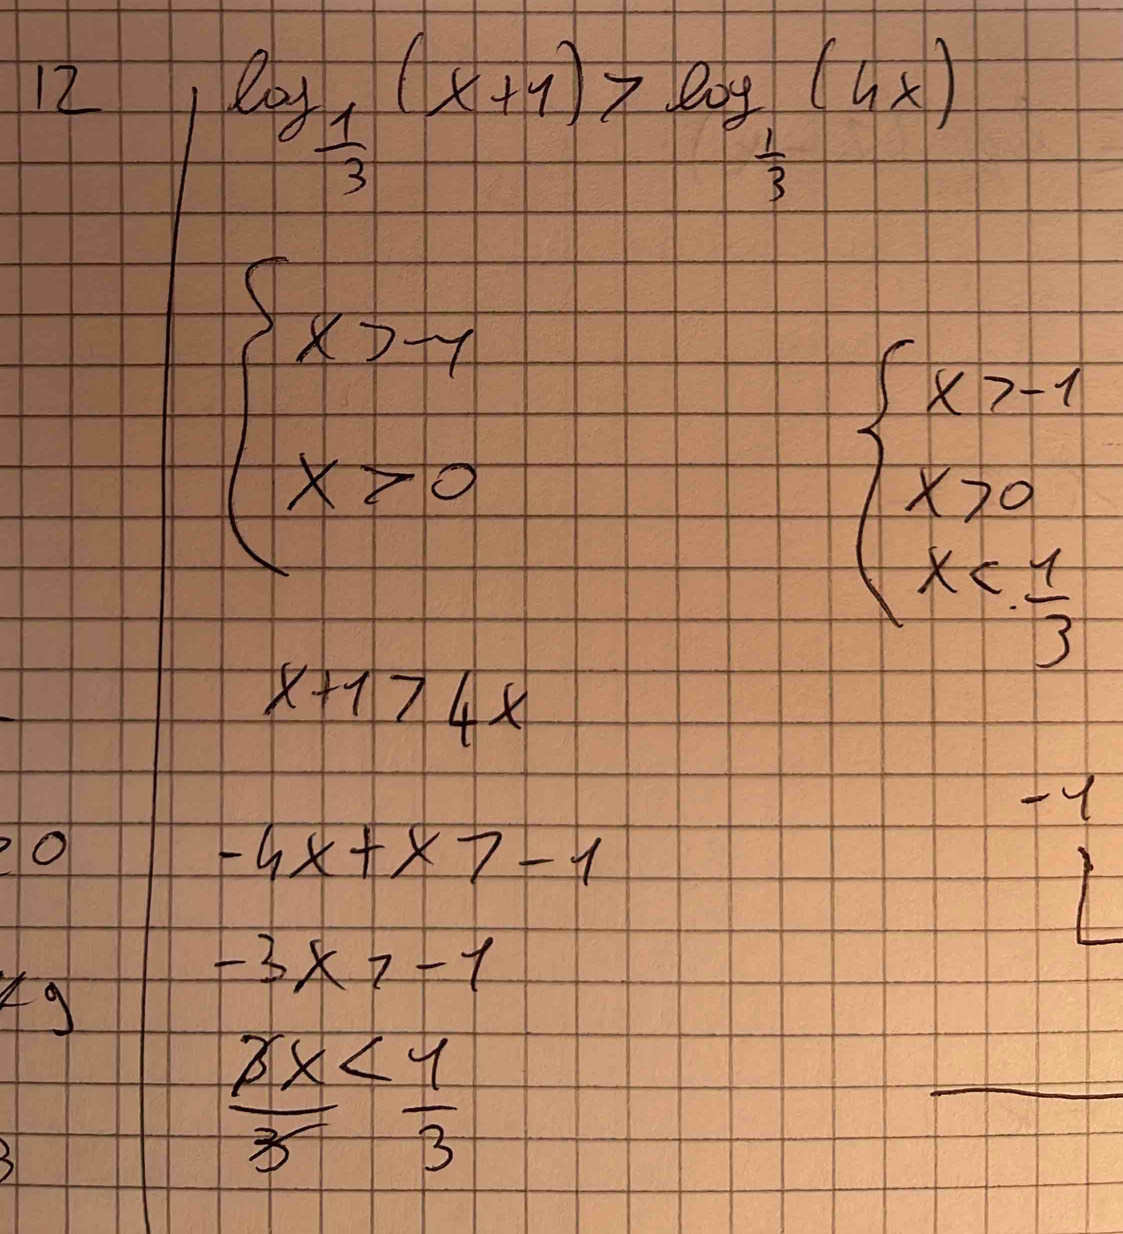 12 log_{1/3} (x+1) > log_{1/3} (4x)
{ x > -1
x > 0
{ x > -1
x > 0
x < 1/3
x+1 > 4x
-4x + x > -1
-3x > -1
3x/3 < 1/3
-1
> 0
< 9
3